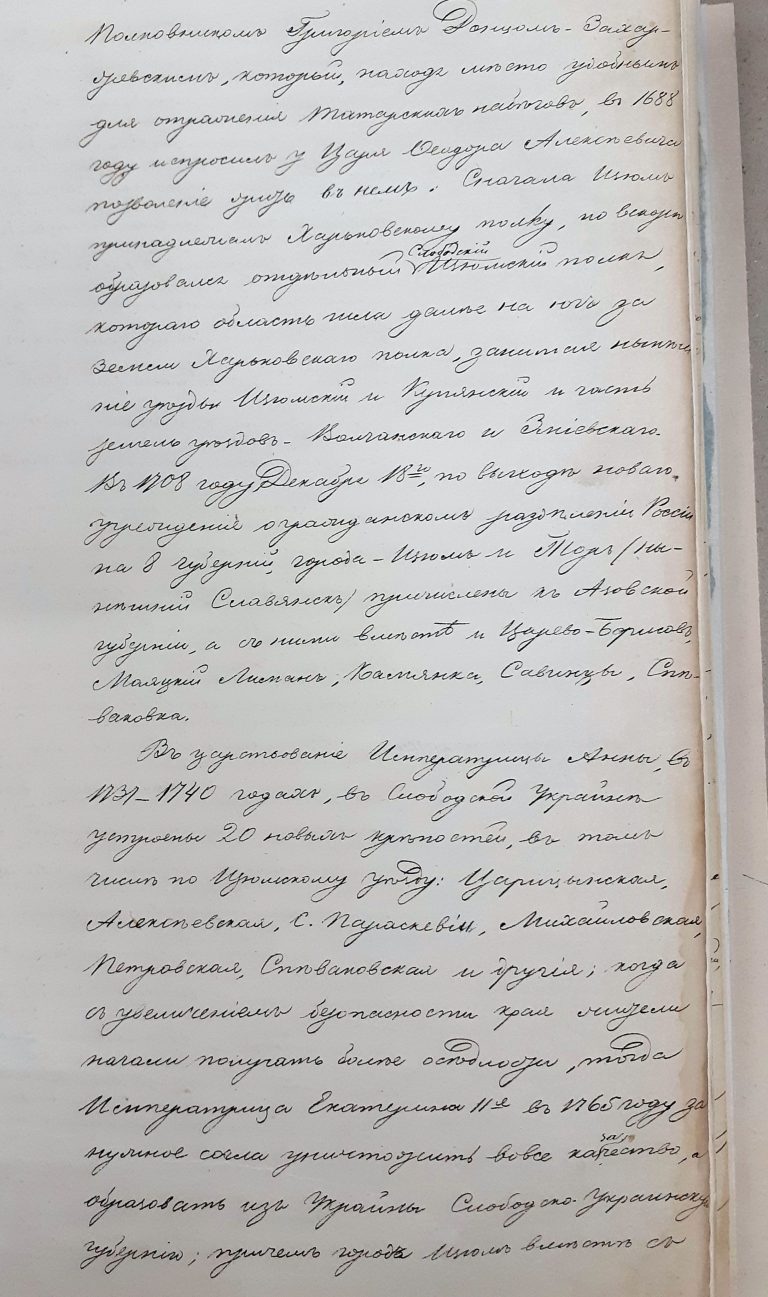 Полковникомъ Григоріемъ Донцомъ-Захар-
жевскимъ, который, находя мѣсто удобнымъ
для отраженія Татарскихъ набѣговъ, въ 1688
году испросилъ у Царя Ѳеодора Алексѣевича
позволеніе жить въ немъ. Сначала Изюмъ
принадлежалъ Харьковскому полку, но вскорѣ
образовался отдѣльный Слободскій Изюмскій полкъ,
котораго область шла далѣе на югъ за
земли Харьковскаго полка, занимая нынѣш-
ніе уѣзды Изюмскій и Купянскій и часть
земель уѣздовъ - Волчанскаго и Зміевскаго.
Въ 1708 году Декабря 18го, по выходѣ новаго
учрежденія о гражданскомъ раздѣленіи Россіи
на 8 губерній, города - Изюмъ и Торъ (ны-
нѣшній Славянскъ) причислены къ Азовской
губерніи, а съ ними вмѣстѣ и Царево-Борисовъ,
Маяцкій Лиманъ, Камянка, Савинцы, Спѣ-
ваковка.
Въ царствованіе Императрицы Анны, въ
1731-1740 годахъ, въ Слободской Украинѣ
устроены 20 новыхъ крѣпостей, въ томъ
числѣ по Изюмскому уѣзду: Царицынская,
Алексѣевская, С. Параскевіи, Михайловская,
Петровская, Спѣваковская и другія; когда
съ увеличеніемъ безопасности края жители
начали получать болѣе осѣдлости, тогда
Императрица Екатерина IIе въ 1765 году за
нужное сочла уничтожить вовсе казачество, а
образовать изъ Украйны Слободско-Украинскую
губернію; причемъ городъ Изюмъ вмѣстѣ съ